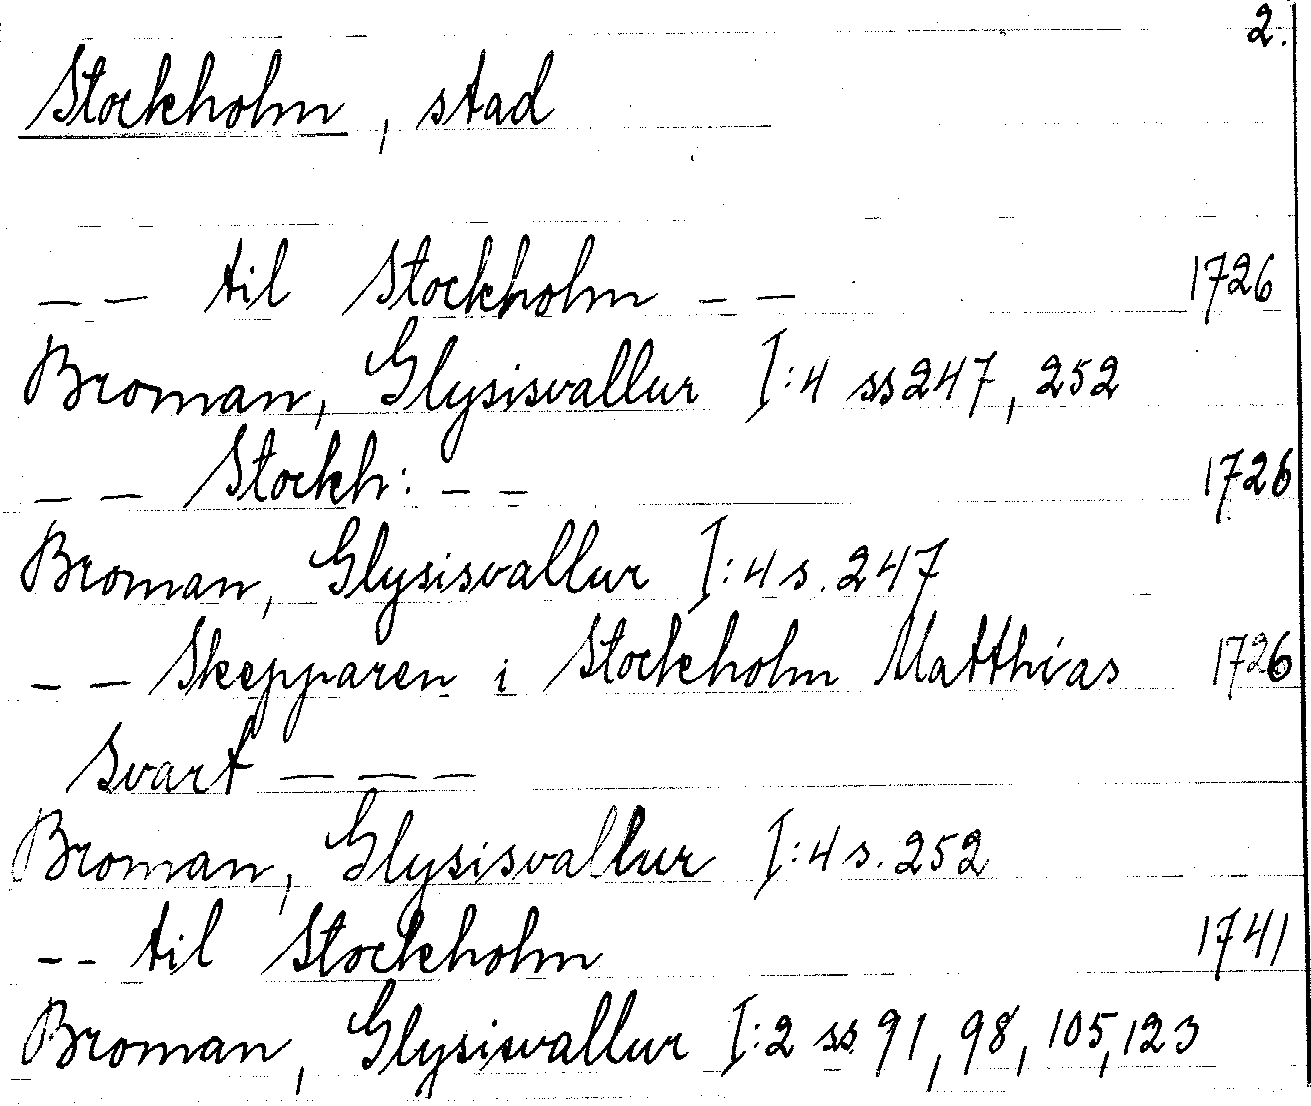 2.
Stockholm, stad
— — til Stockholm — — 1726
Broman, Glysisvallur I:4 ss 247, 252
— — Stockh: — — 1726
Broman, Glysisvallur I:4 s. 247
— — Skepparen i Stockholm Matthias 1726
Svart — — —
Broman, Glysisvallur I:4 s. 252
— — til Stockholm 1741
Broman, Glysisvallur I:2 ss 91, 98, 105, 123